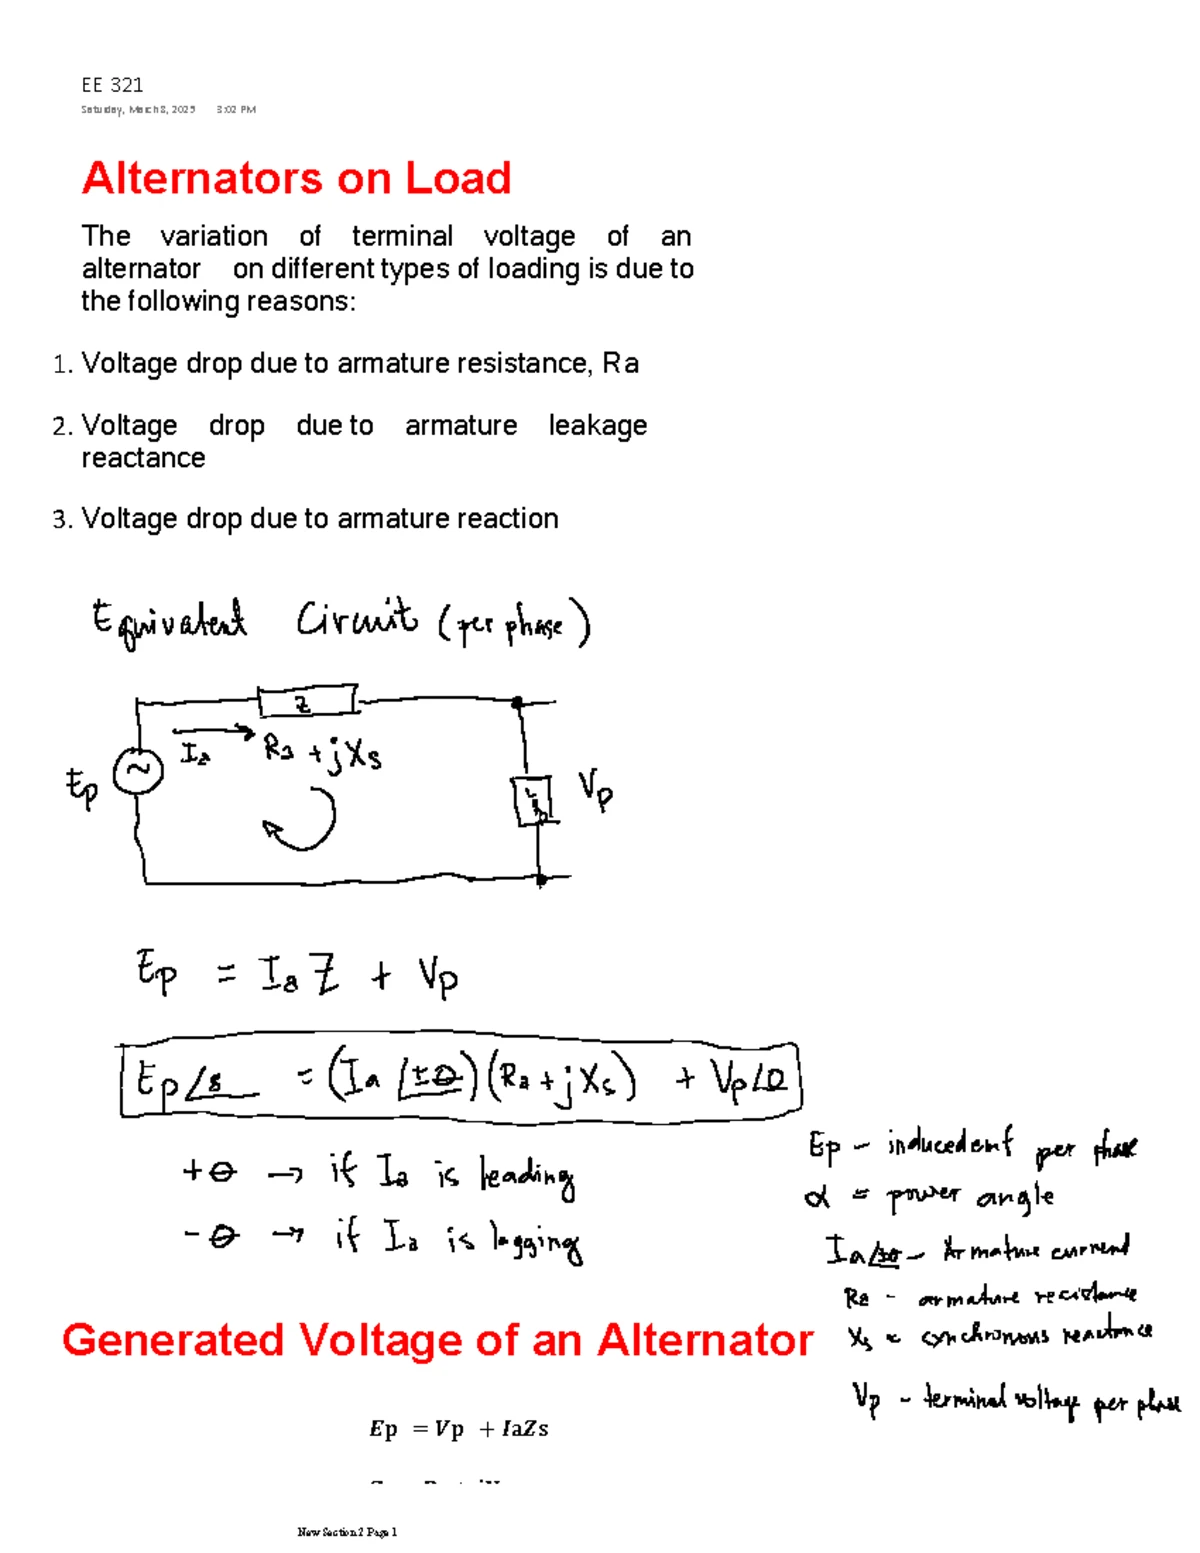 EE 321
Saturday, March 8, 2025 3:02 PM
Alternators on Load
The variation of terminal voltage of an
alternator on different types of loading is due to
the following reasons:
1. Voltage drop due to armature resistance, Ra
2. Voltage drop due to armature leakage
reactance
3. Voltage drop due to armature reaction
Equivalent Circuit (per phase)
Z
Ia
Ra + jXs
Ep
~
Vp
Ep = IaZ + Vp
Ep∠8 = (Ia∠±θ)(Ra + jXs) + Vp∠0
+θ → if Ia is leading
-θ → if Ia is lagging
Ep - inducedemf per phase
α = power angle
Ia∠±θ - Armature current
Ra - armature resistance
Xs = synchronous reactance
Vp - terminal voltage per phase
Generated Voltage of an Alternator
Ep = Vp + IaZs
New Section 2 Page 1